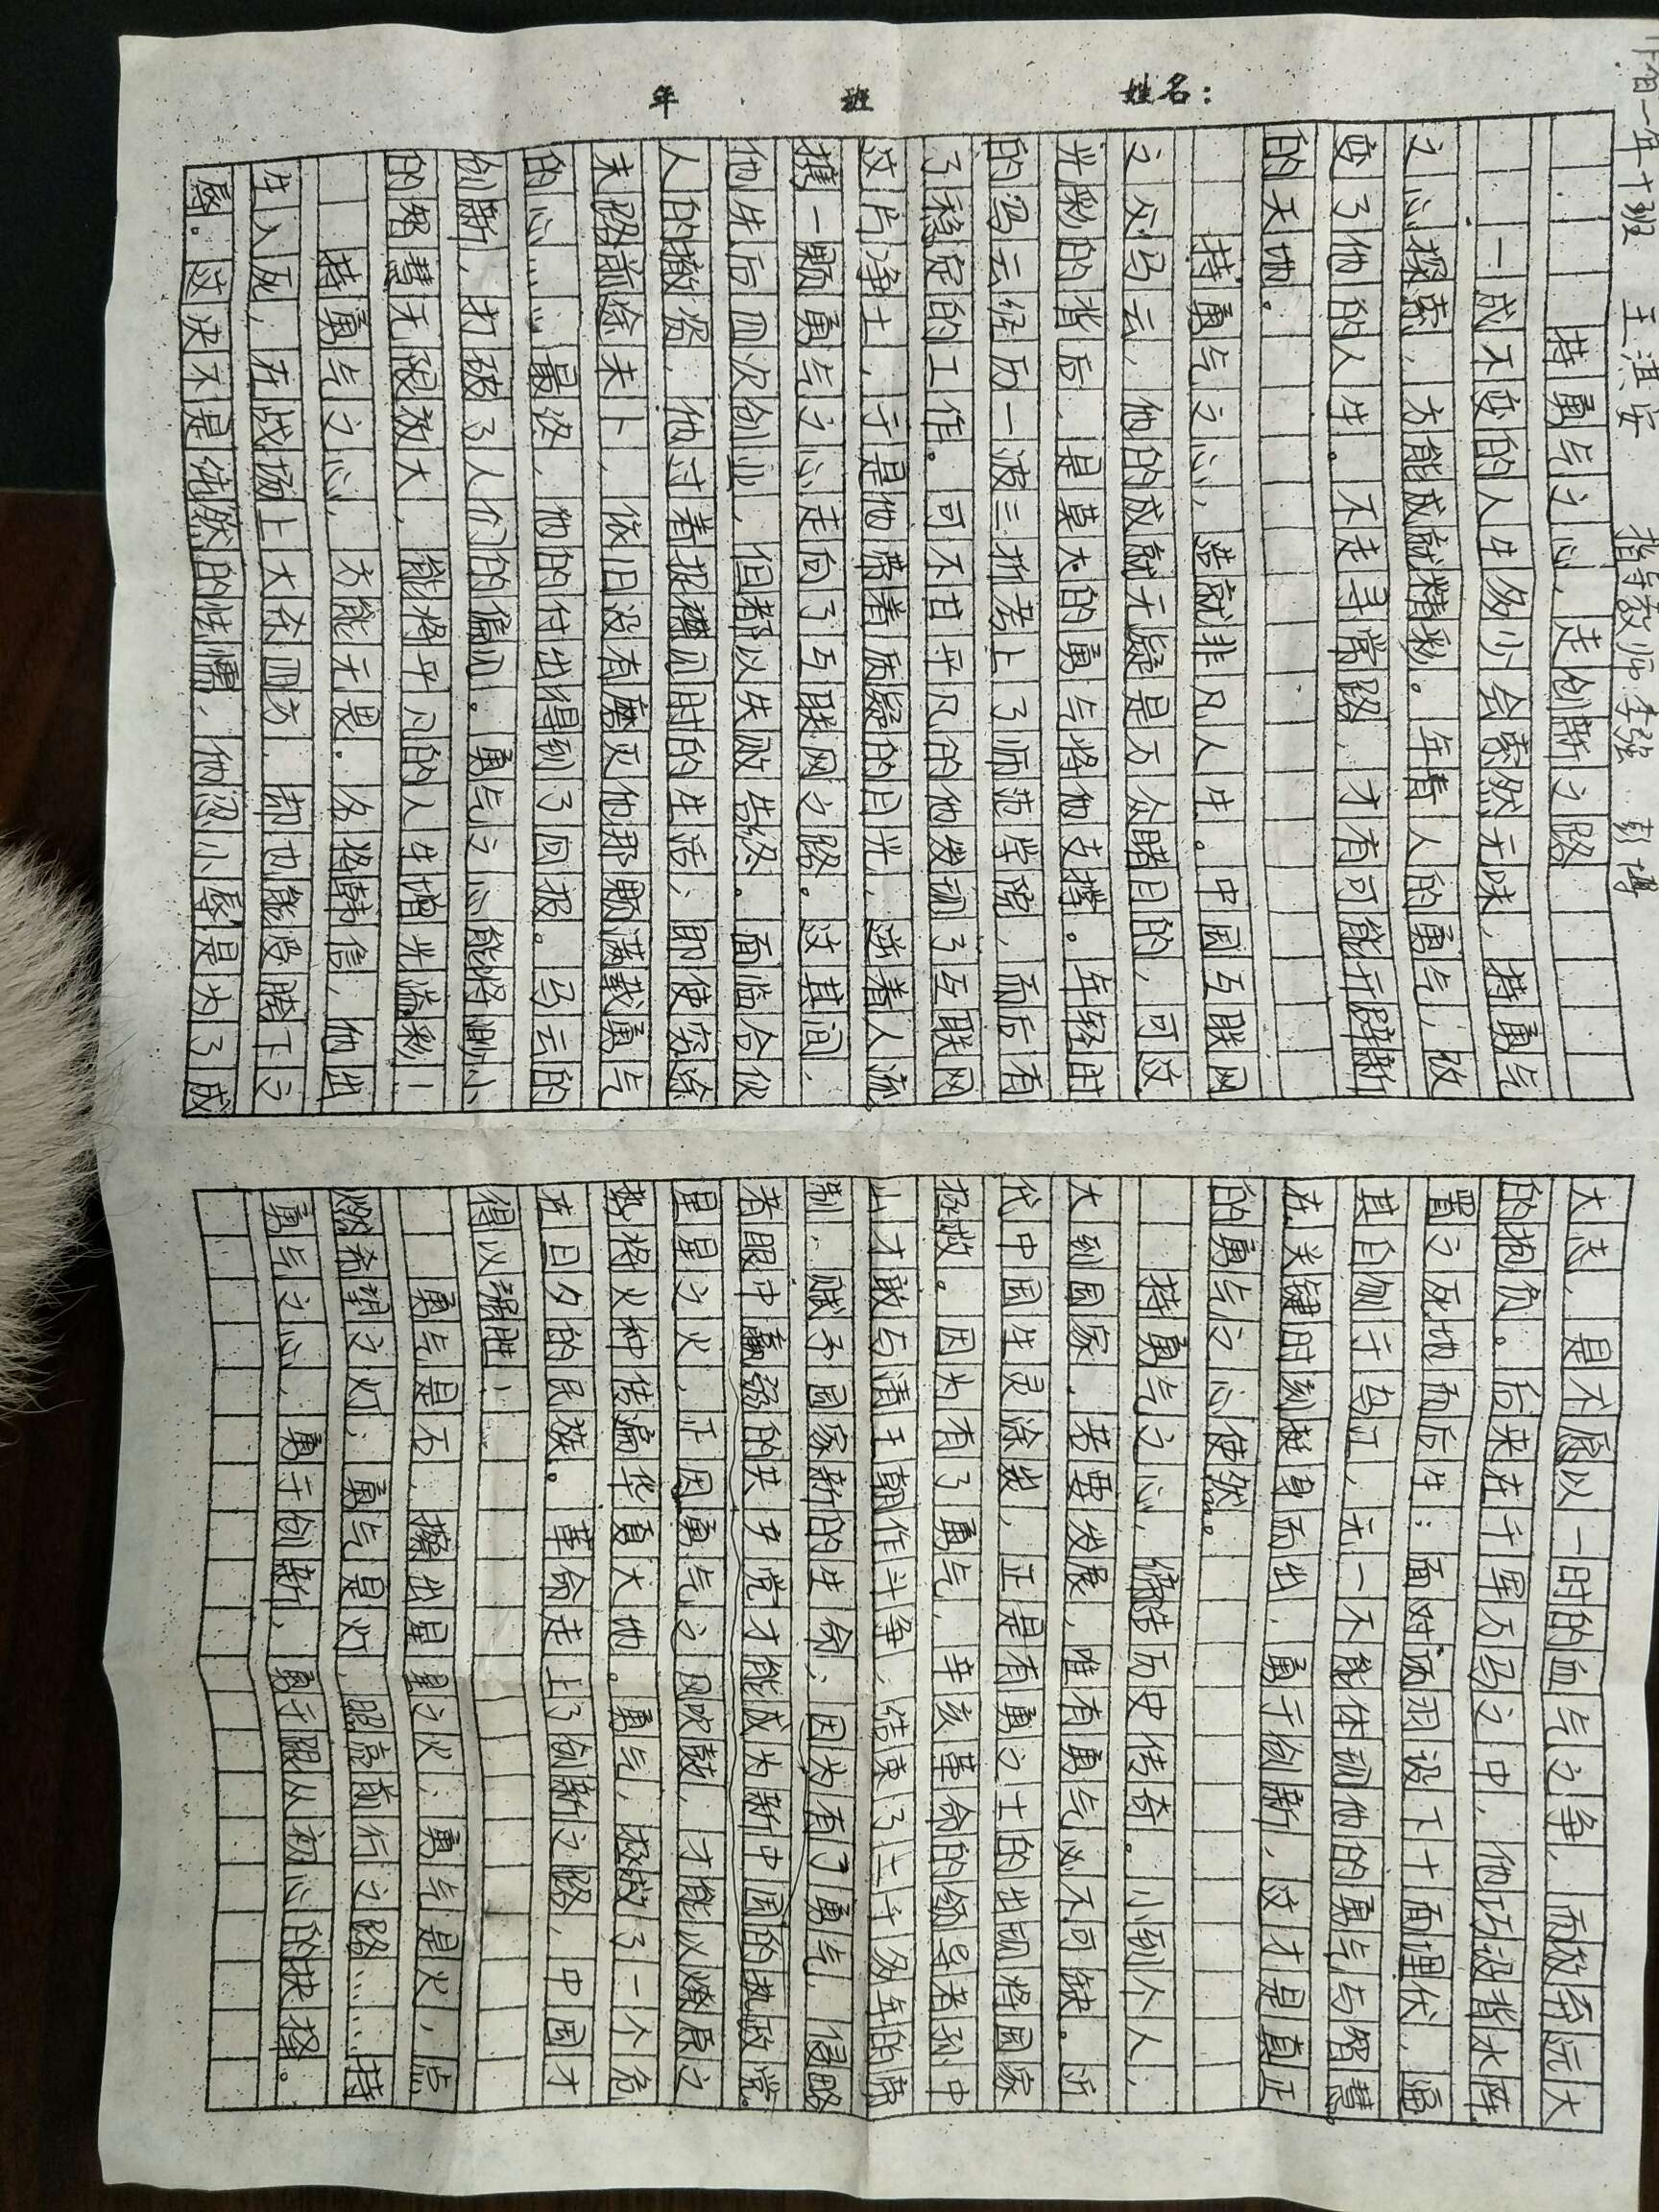 一年十班 王淇安 指导教师 李强 彭博
年 班 姓名:
持勇气之心，走创新之路
一成不变的人生多少会索然无味，持勇气
之心探索，方能成就精彩。年青人的勇气，改
变了他的人生。不走寻常路，才有可能开辟新
的天地。
持勇气之心，造就非凡人生。中国互联网
之父马云，他的成就无疑是万众睹目的，可这
光彩的背后，是莫大的勇气将他支撑。年轻时
的马云经历一波三折考上了师范学院，而后有
了稳定的工作。可不甘平凡的他发现了互联网
这片净土，于是他带着质疑的目光，逆着人流
携一颗勇气之心走向了互联网之路。这其间，
他先后四次创业，但都以失败告终。面临合伙
人的撤资，他过着捉襟见肘的生活，即使穷途
末路前途未卜，依旧没有磨灭他那颗满载勇气
的心……最终，他的付出得到了回报。马云的
创新，打破了人们的偏见。勇气之心能将渺小
的智慧无限放大，能将平凡的人生增光溢彩！
持勇气之心，方能无畏。名将韩信，他出
生入死，在战场上大杀四方，却也能受胯下之
辱。这决不是纯然的怯懦，他忍小辱是为了成
大志，是不愿以一时的血气之争，而放弃远大
的抱负。后来在千军万马之中，他巧设背水阵
置之死地而后生；面对项羽设下十面埋伏，逼
其自刎于乌江，无一不能体现他的勇气与智慧。
在关键时刻挺身而出，勇于创新，这才是真正
的勇气之心使然。
持勇气之心，缔造历史传奇。小到个人，
大到国家，若要发展，唯有勇气必不可缺。近
代中国生灵涂炭，正是有勇之士的出现将国家
拯救。因为有了勇气，辛亥革命的领导者孙中
山才敢与清王朝作斗争，结束了二千多年的帝
制，赋予国家新的生命；因为有了勇气，侵略
者眼中羸弱的共产党才能成为新中国的执政党。
星星之火，正因勇气之风吹鼓，才能以燎原之
势将火种传遍华夏大地。勇气，拯救了一个危
在旦夕的民族。革命走上了创新之路，中国才
得以强胜！
勇气是石，擦出星星之火；勇气是火，点
燃希望之灯；勇气是灯，照亮前行之路……持
勇气之心，勇于创新，勇于跟从初心的抉择。